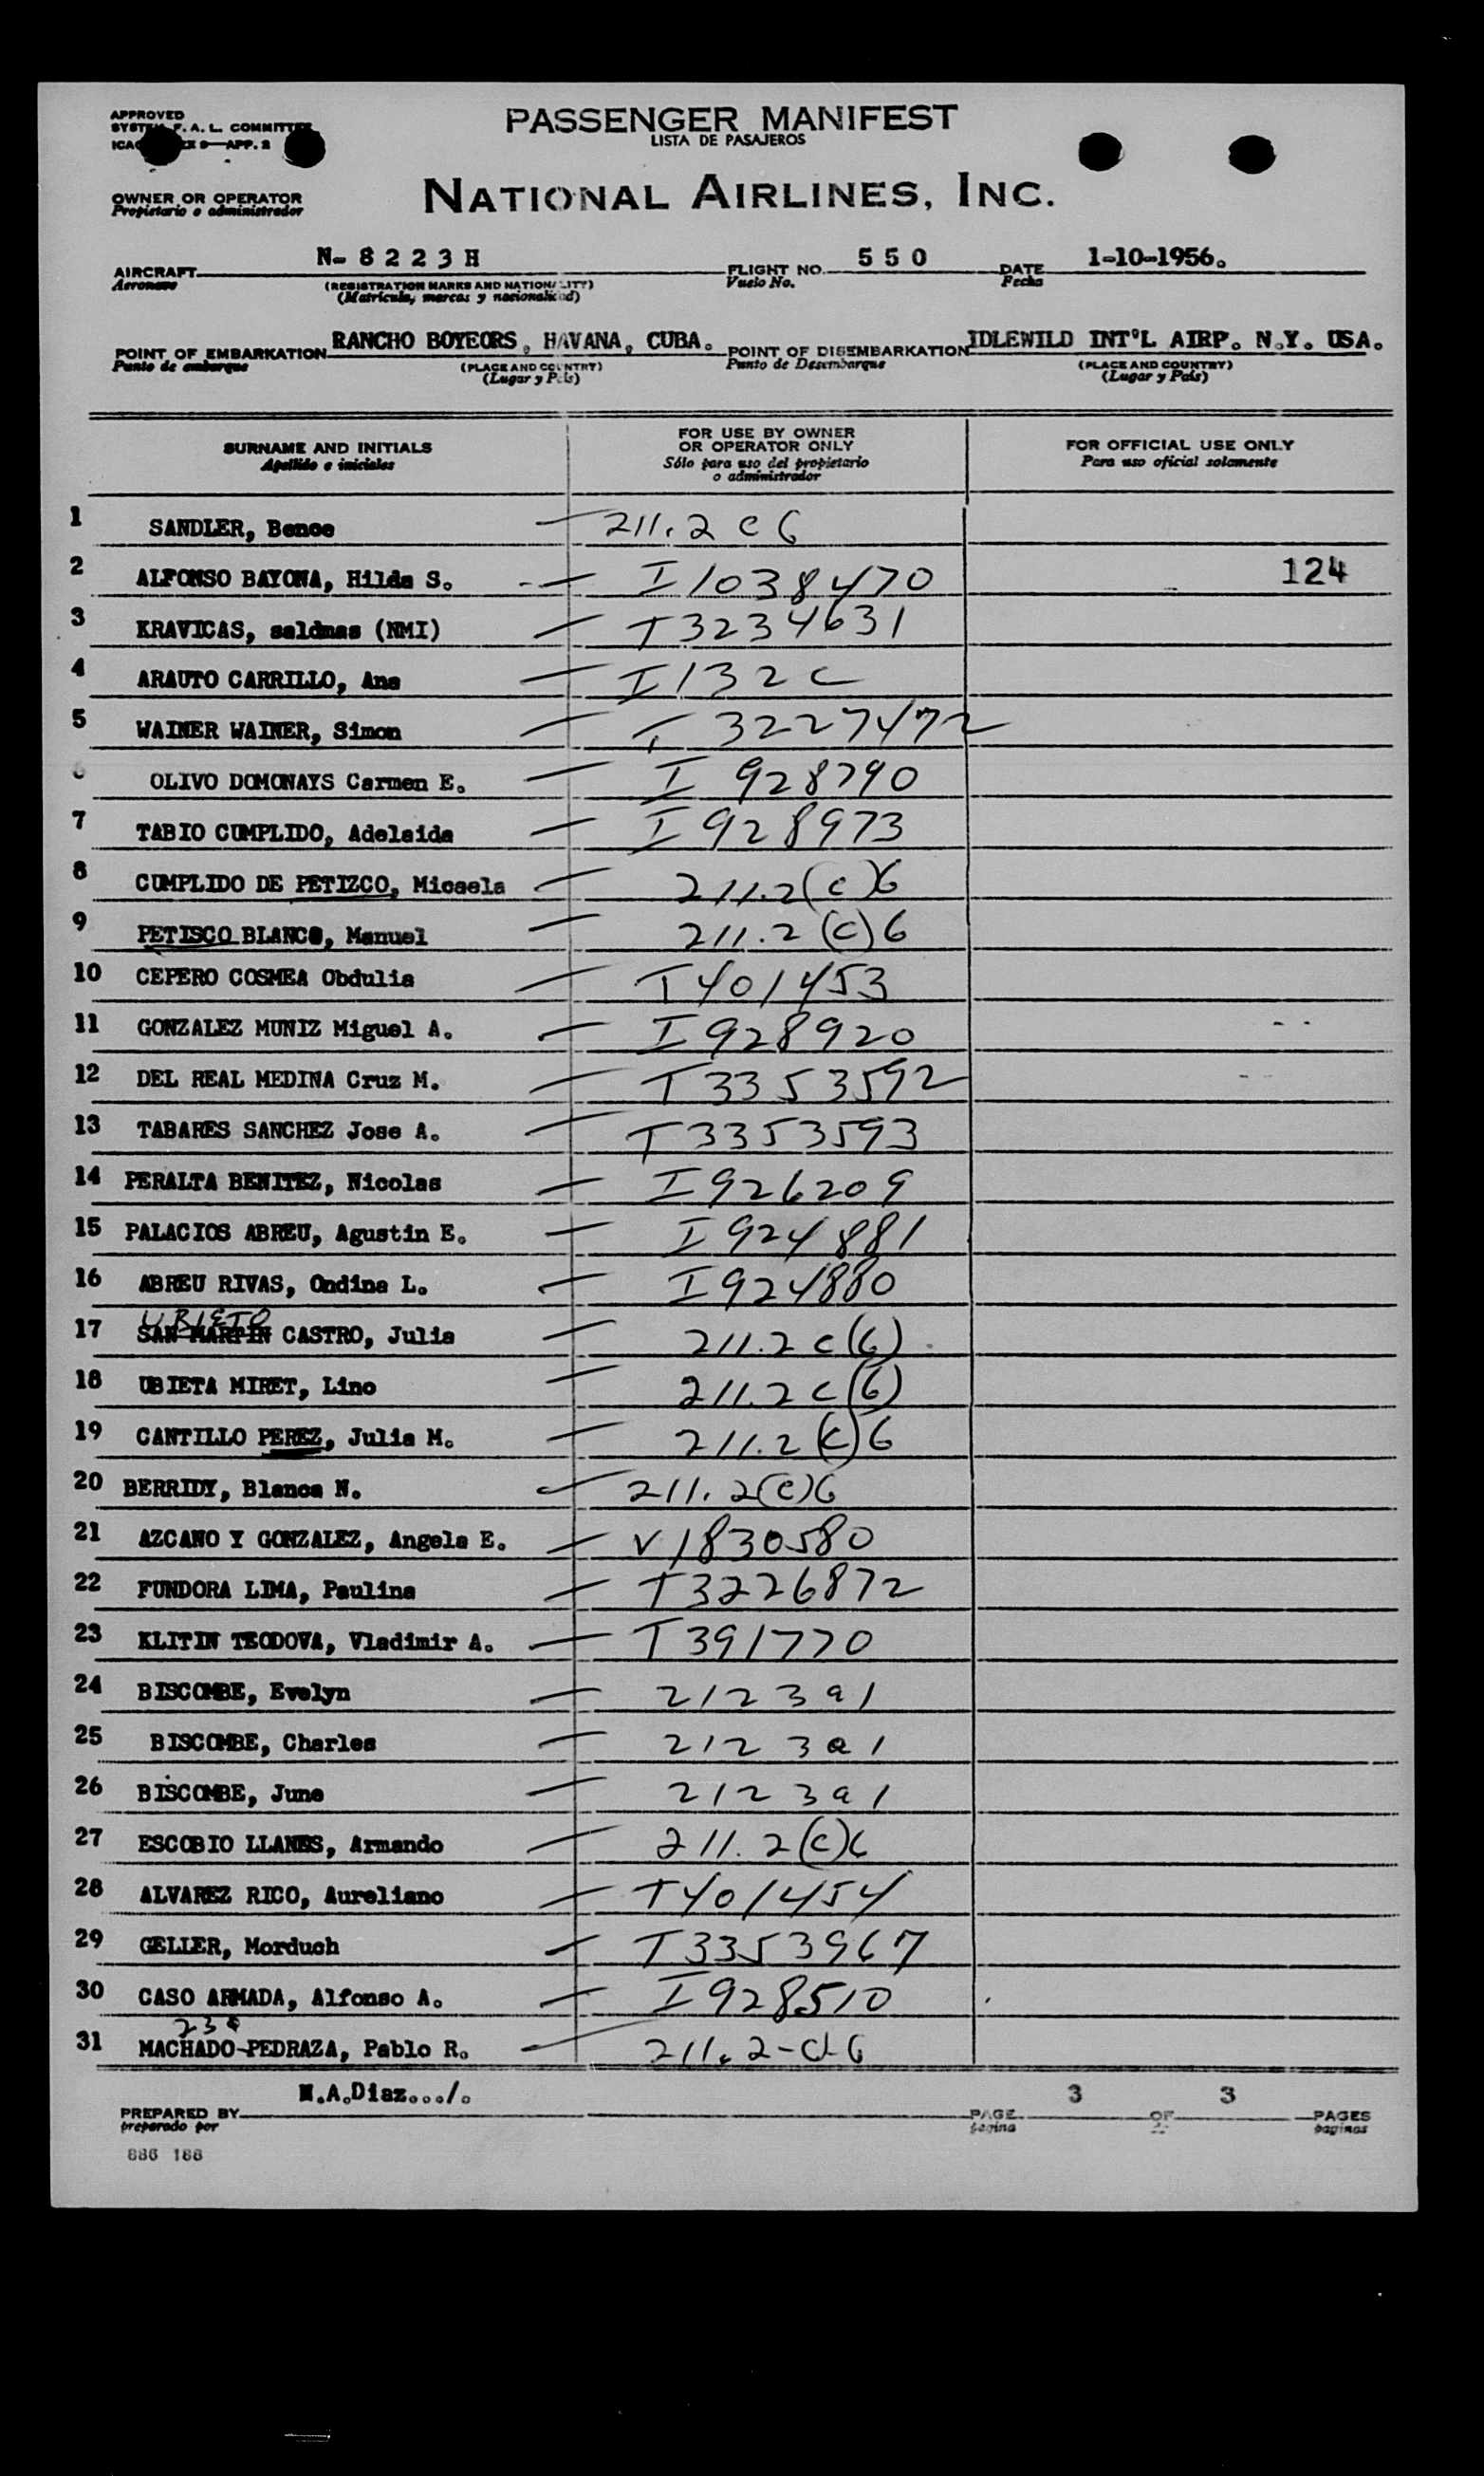 APPROVED
SYSTEM F. A. L. COMMITTEE
9—APP. 2
PASSENGER MANIFEST
LISTA DE PASAJEROS
OWNER OR OPERATOR
Propietario o administrador
NATIONAL AIRLINES, INC.
AIRCRAFT N- 8 2 2 3 H FLIGHT NO. 5 5 0 DATE 1-10-1956.
Aeronave (REGISTRATION MARKS AND NATIONALITY) Vuelo No. Fecha
(Matricula, marcas y nacionalidad)
POINT OF EMBARKATION RANCHO BOYEORS, HAVANA, CUBA. POINT OF DISEMBARKATION IDLEWILD INT'L AIRP. N.Y. USA.
Punto de embarque (PLACE AND COUNTRY) Punto de Desembarque (PLACE AND COUNTRY)
(Lugar y País) (Lugar y País)
SURNAME AND INITIALS FOR USE BY OWNER OR OPERATOR ONLY FOR OFFICIAL USE ONLY
Apellido e iniciales Sólo para uso del propietario o administrador Para uso oficial solamente
1 SANDLER, Bence — 211.2 C 6
2 ALFONSO BAYONA, Hilda S. — I 1038470 124
3 KRAVICAS, saldmas (NMI) — T 3234631
4 ARAUTO CARRILLO, Ana — I 132 C
5 WAINER WAINER, Simon — T 3227472
6 OLIVO DOMONAYS Carmen E. — I 928790
7 TABIO CUMPLIDO, Adelaida — I 928973
8 CUMPLIDO DE PETIZCO, Micaela — 211.2(c)6
9 PETISCO BLANCO, Manuel — 211.2(c)6
10 CEPERO COSMEA Obdulia — T401453
11 GONZALEZ MUNIZ Miguel A. — I 928920
12 DEL REAL MEDINA Cruz M. — T 3353592
13 TABARES SANCHEZ Jose A. — T 3353593
14 PERALTA BENITEZ, Nicolas — I 926209
15 PALACIOS ABREU, Agustin E. — I 924881
16 ABREU RIVAS, Ondina L. — I 924880
UBIETO
17 SAN MARTIN CASTRO, Julia — 211.2 c(6)
18 UBIETA MIRET, Lino — 211.2 c(6)
19 CANTILLO PEREZ, Julia M. — 211.2(c)6
20 BERRIDY, Blanca N. — 211.2(c)6
21 AZCANO Y GONZALEZ, Angela E. — V 1830580
22 FUNDORA LIMA, Paulina — T3226872
23 KLITIN TEODOVA, Vladimir A. — T391770
24 BISCOMBE, Evelyn — 212 3 a 1
25 BISCOMBE, Charles — 212 3 a 1
26 BISCOMBE, June — 212 3 a 1
27 ESCOBIO LLANES, Armando — 211.2(c)6
28 ALVAREZ RICO, Aureliano — T401454
29 GELLER, Morduch — T3353967
30 CASO ARMADA, Alfonso A. — I 928510
31 MACHADO-PEDRAZA, Pablo R. — 211.2-c-6
PREPARED BY N.A.Diaz.../. PAGE 3 OF 3 PAGES
preparado por pagina de paginas
886 188